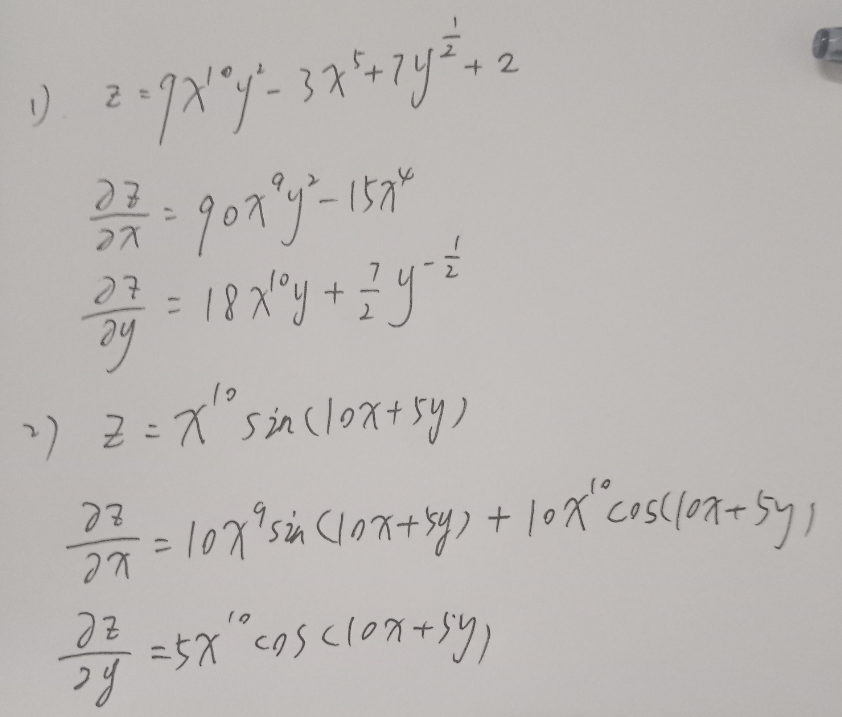 1) z = 9x¹⁰y² - 3x⁵ + 7y^(1/2) + 2
∂z/∂x = 90x⁹y² - 15x⁴
∂z/∂y = 18x¹⁰y + 7/2 y^(-1/2)
2) z = x¹⁰ sin(10x+5y)
∂z/∂x = 10x⁹ sin(10x+5y) + 10x¹⁰ cos(10x+5y)
∂z/∂y = 5x¹⁰ cos(10x+5y)